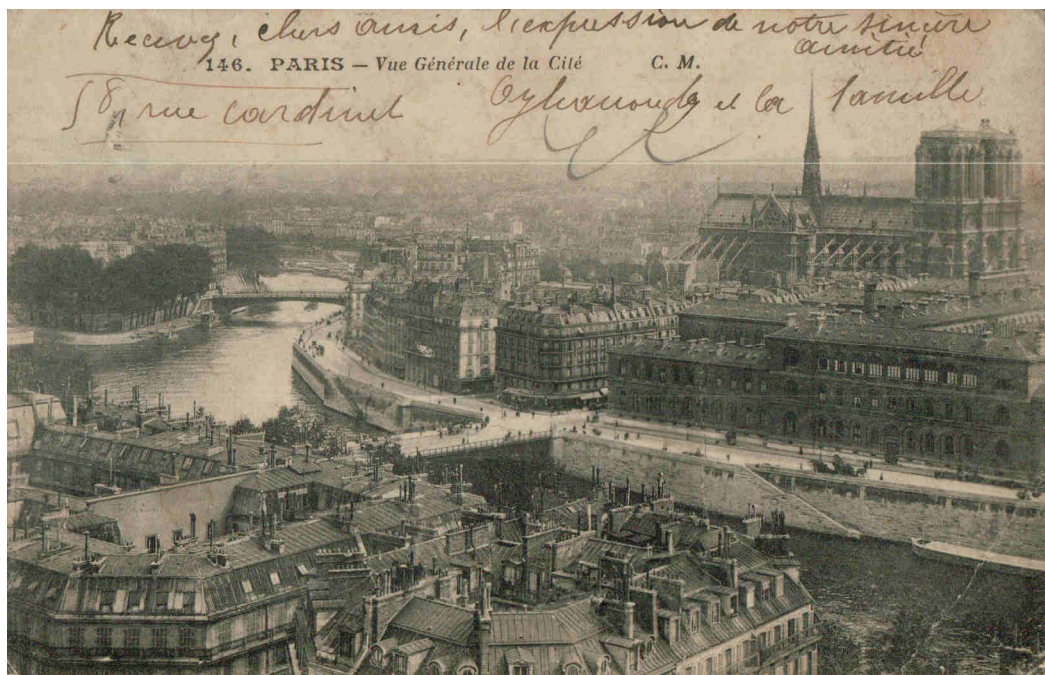 Recevez, chers amis, l'expression de notre sincère
amitié
146. PARIS – Vue Générale de la Cité C. M.
58, rue Cardinet
et la famille